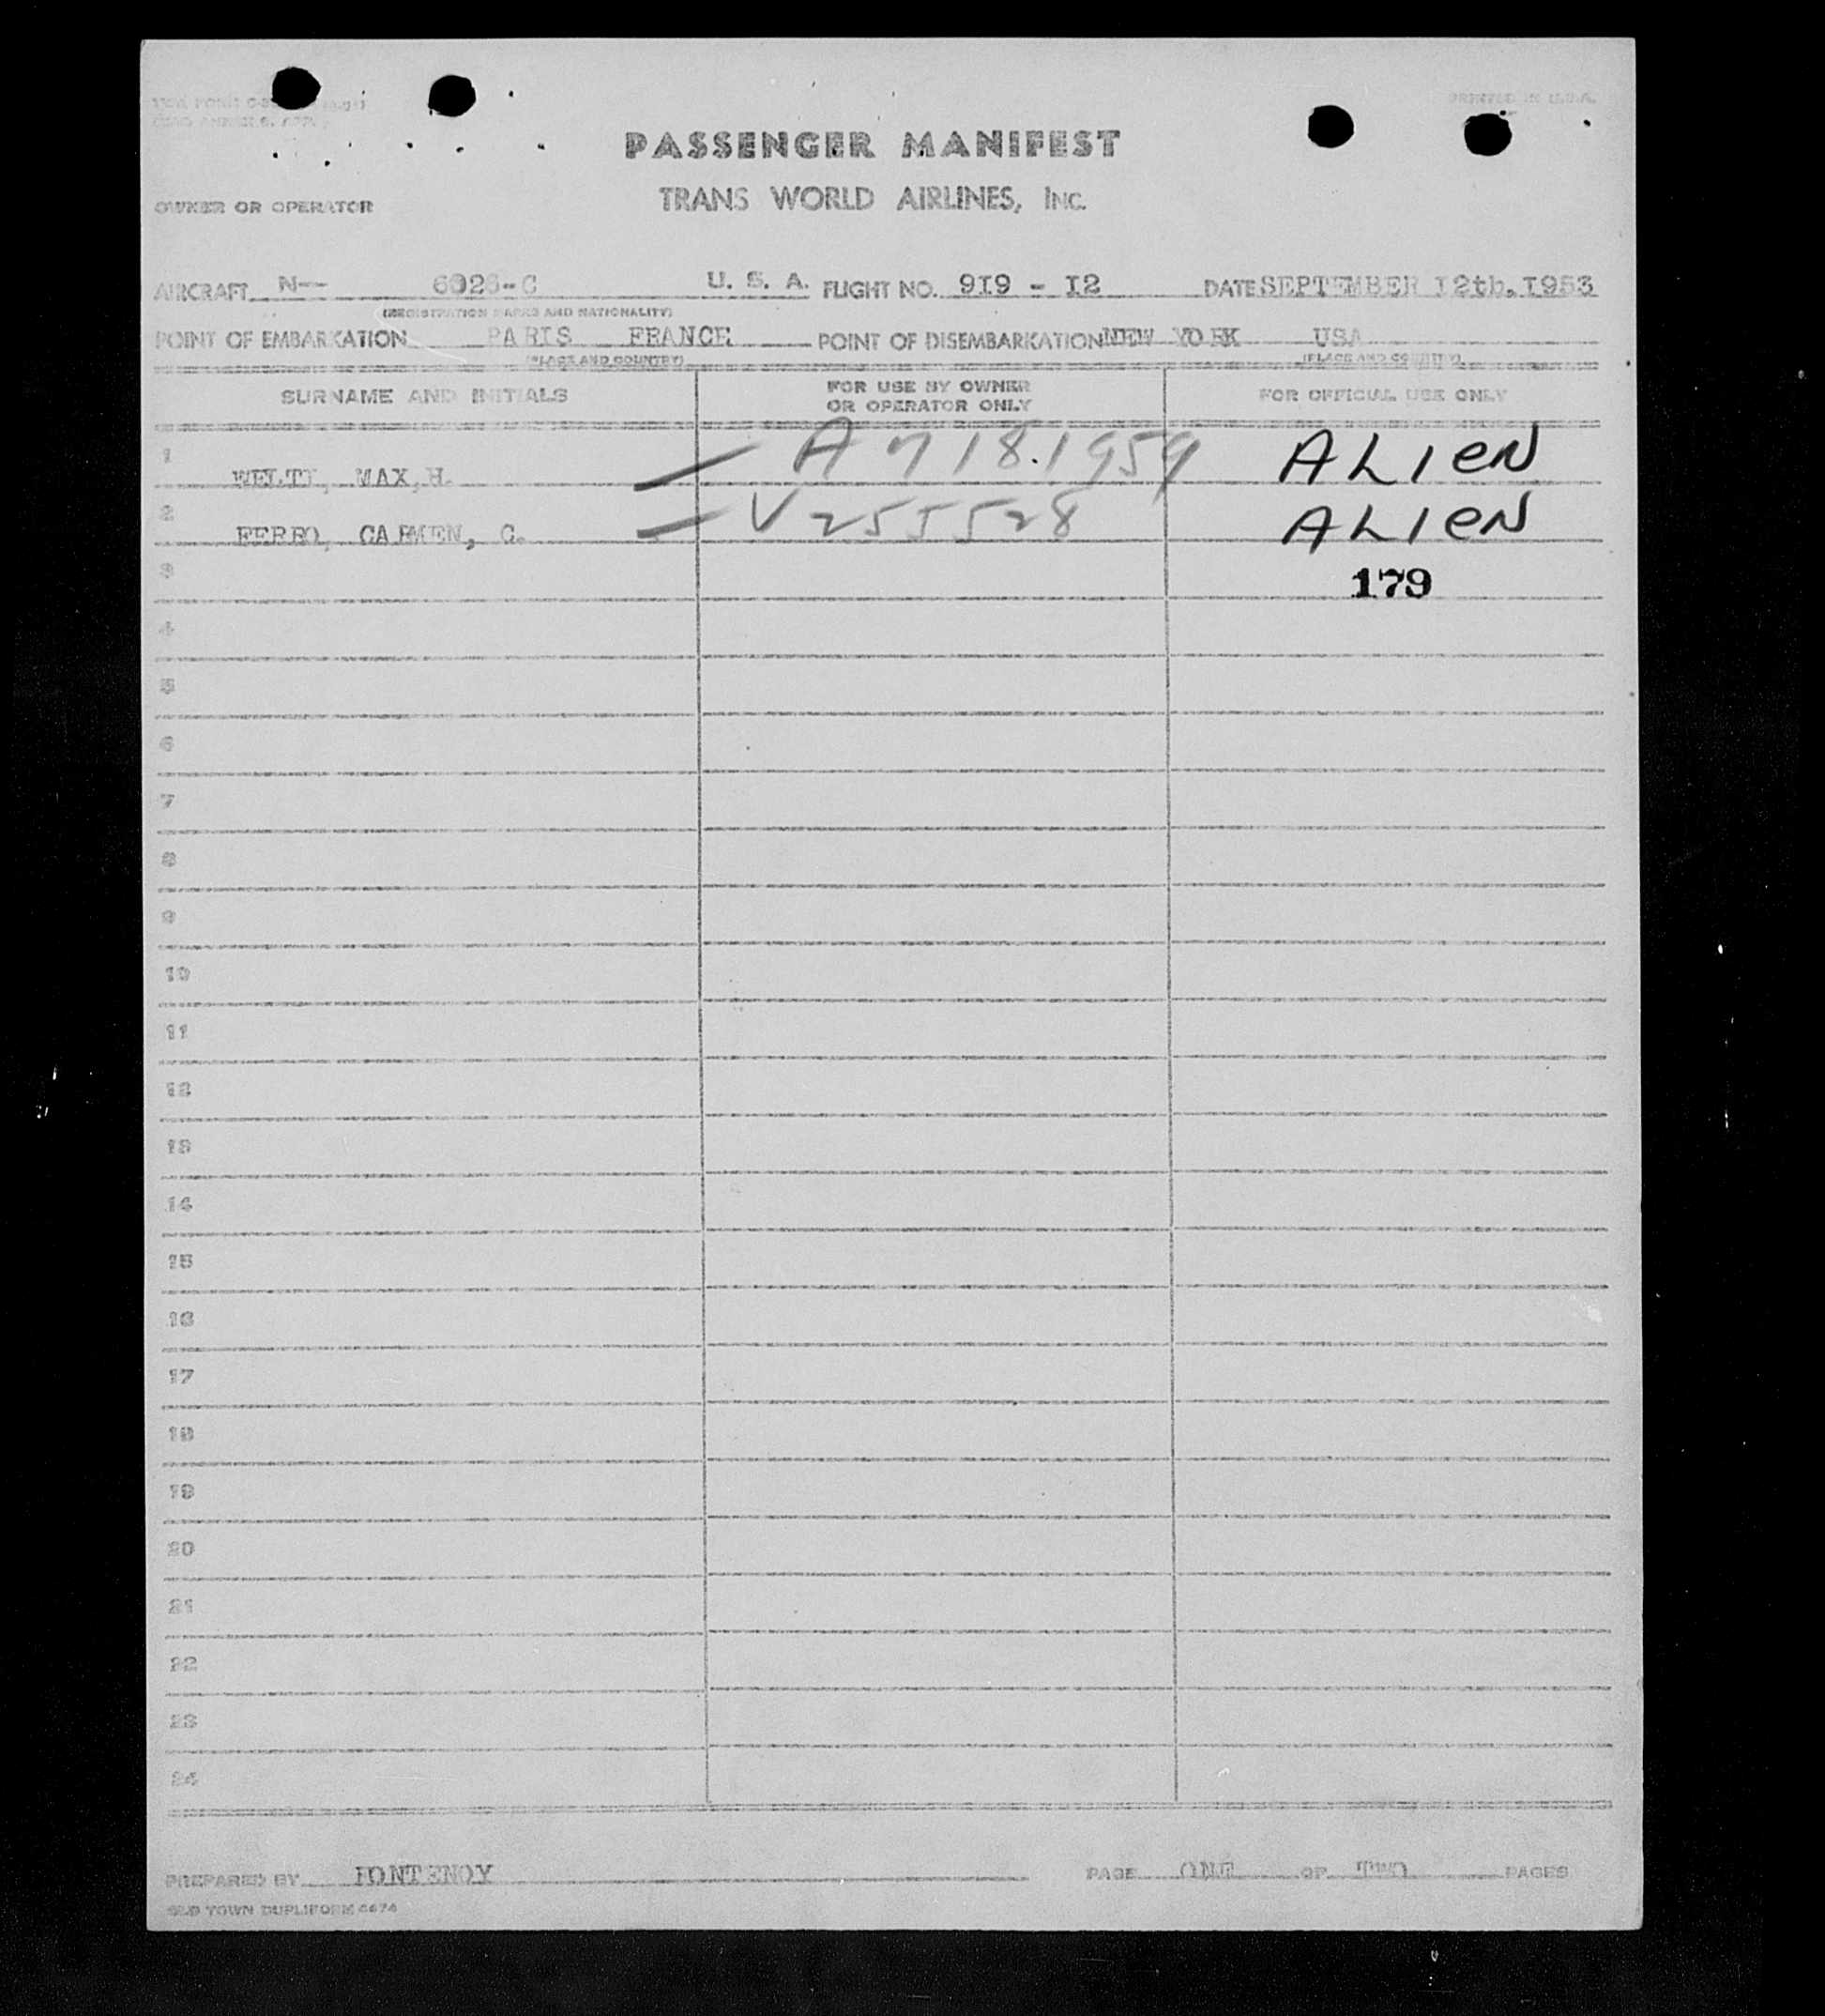 PRINTED IN U.S.A.
PASSENGER MANIFEST
TRANS WORLD AIRLINES, INC.
OWNER OR OPERATOR
AIRCRAFT N-- 6026-C U. S. A. FLIGHT NO. 9I9 - I2 DATE SEPTEMBER I2th.I953
(REGISTRATION MARKS AND NATIONALITY)
POINT OF EMBARKATION PARIS FRANCE POINT OF DISEMBARKATION NEW YORK USA
(PLACE AND COUNTRY) (PLACE AND COUNTRY)
SURNAME AND INITIALS FOR USE BY OWNER OR OPERATOR ONLY FOR OFFICIAL USE ONLY
1 WELTI, MAX,H. A 718.1959 ALIEN
2 FERRO, CARMEN, C. V 255528 ALIEN
3 179
4
5
6
7
8
9
10
11
12
13
14
15
16
17
18
19
20
21
22
23
24
PREPARED BY FONTENOY PAGE ONE OF TWO PAGES
OLD TOWN DUPLIFORM 4474